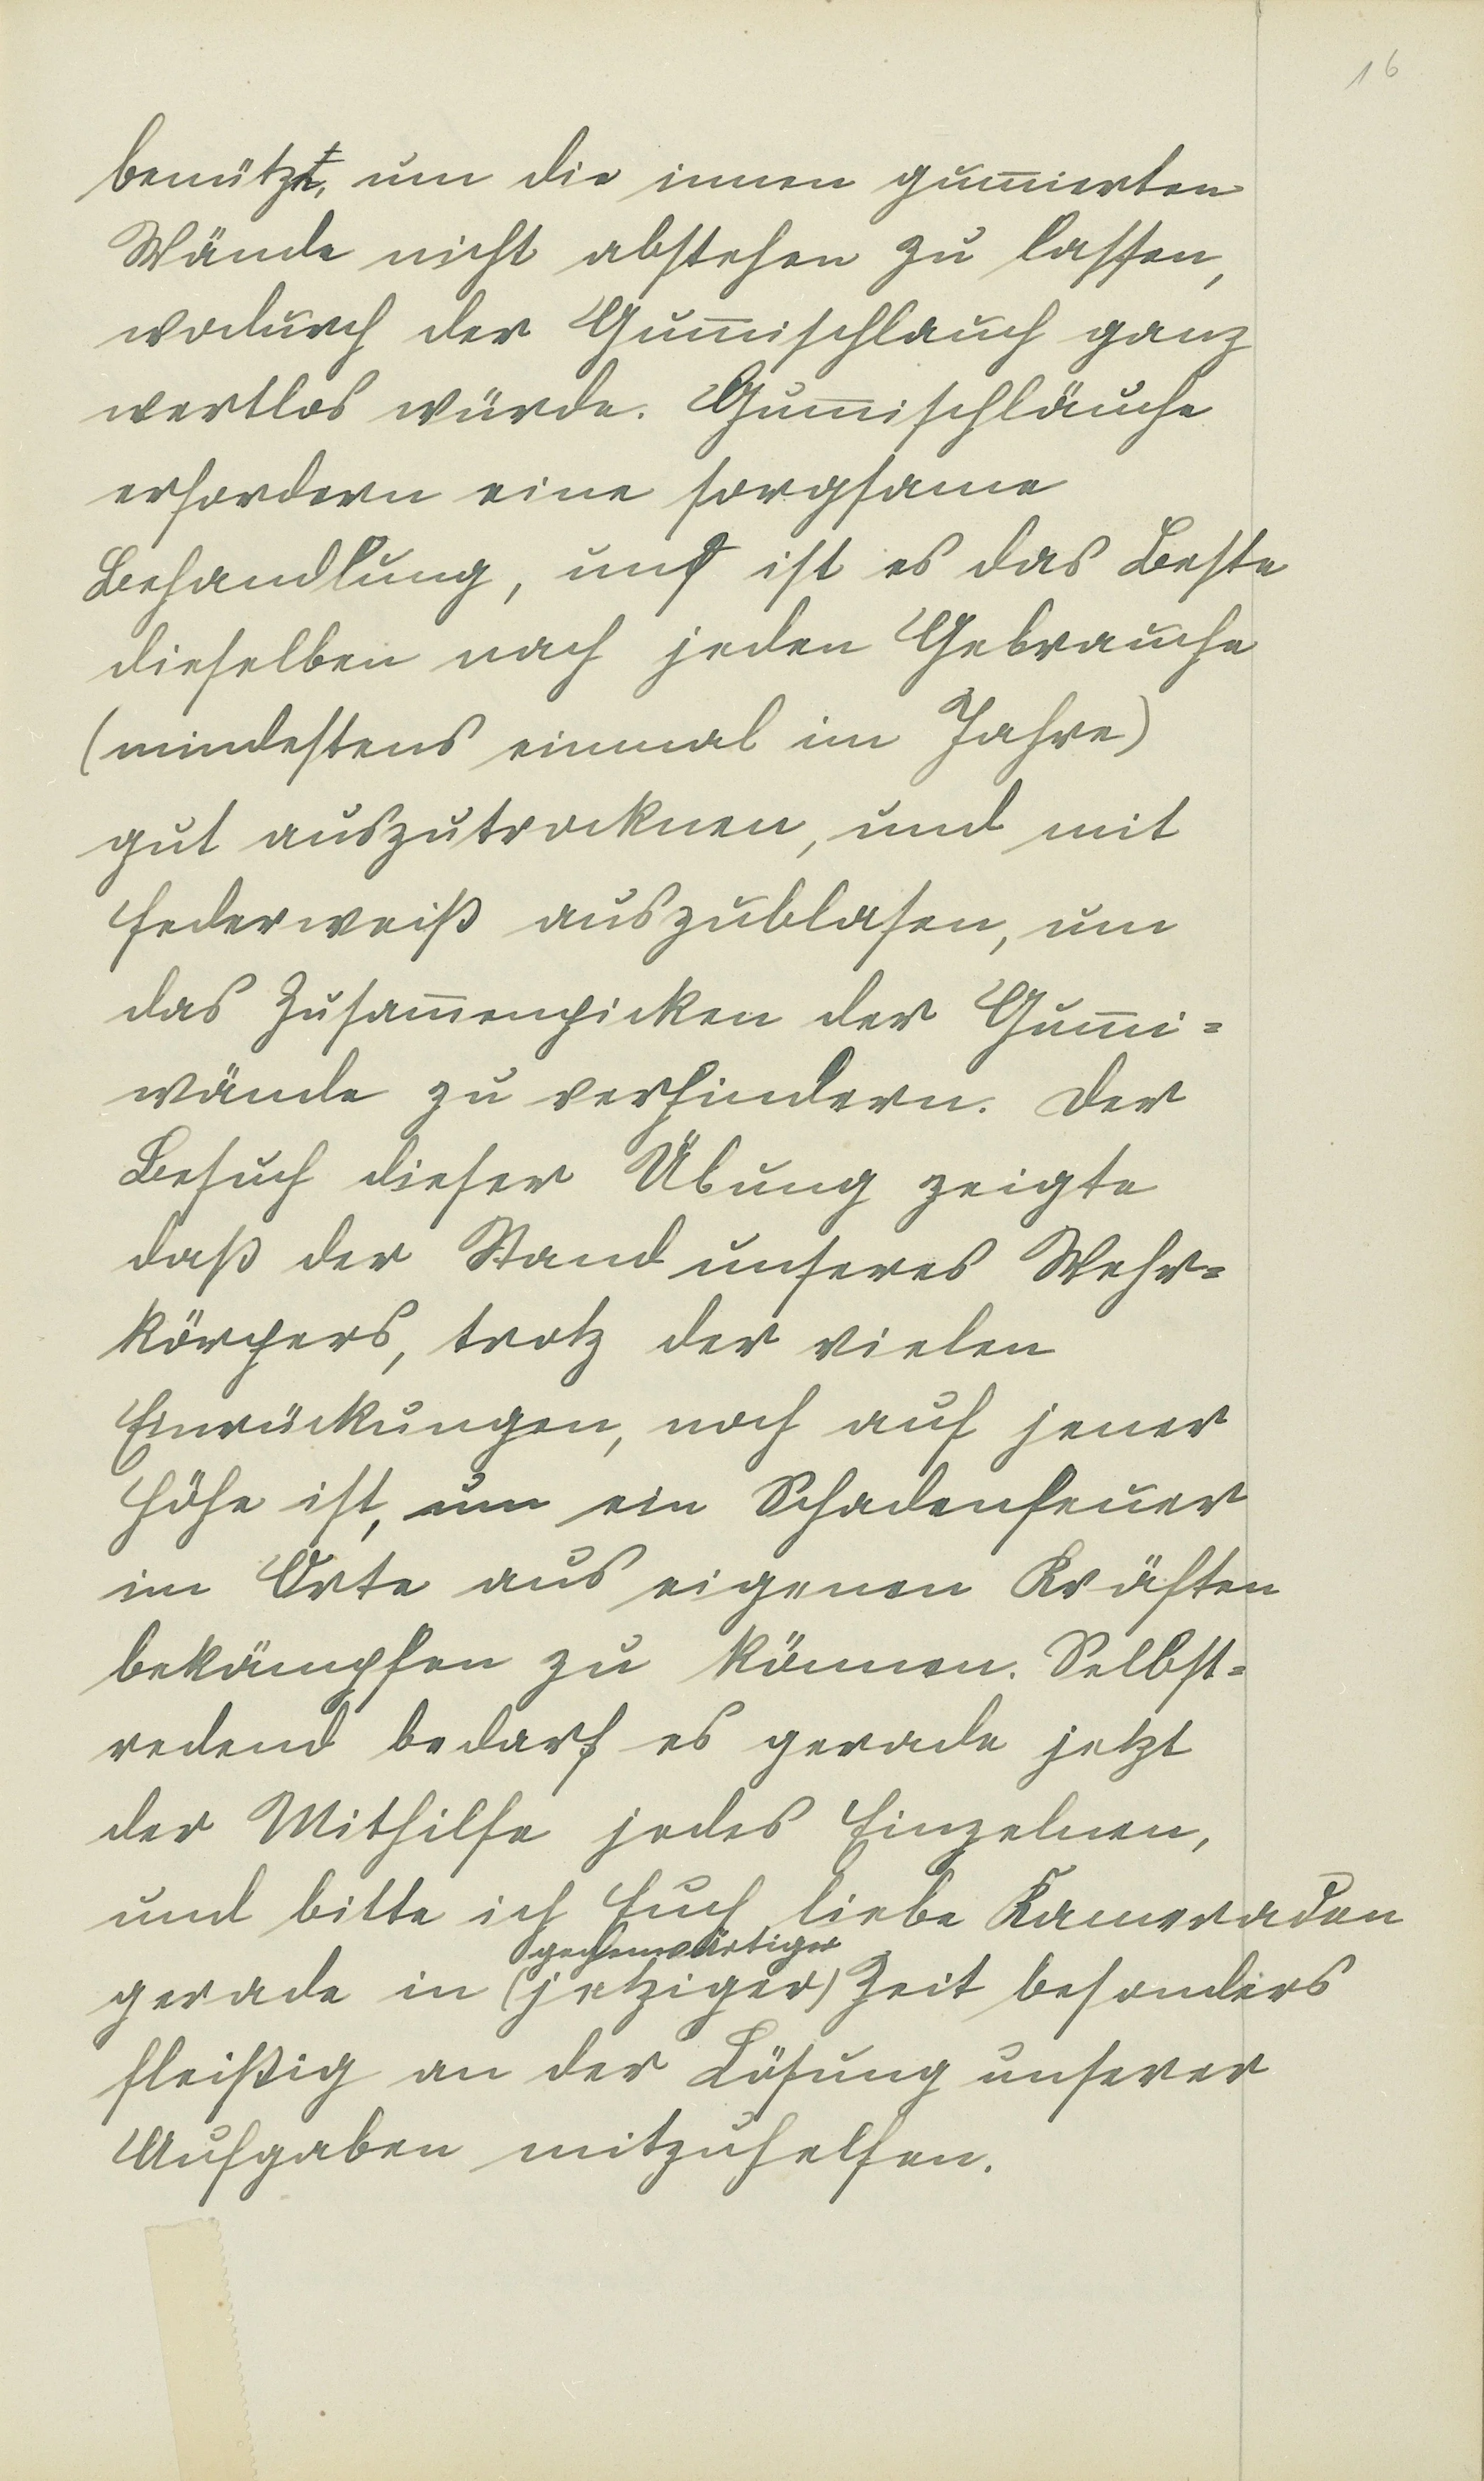 16
benützt, um die innen gum̅ierten
Wände nicht abstehen zu lassen,
wodurch der Gum̅ischlauch ganz
wertlos würde. Gum̅ischläuche
erfordern eine sorgsame
Behandlung, und ist es das Beste
dieselben nach jeden Gebrauche
(mindestens einmal im Jahre)
gut auszutrocknen, und mit
Federweiß auszublasen, um
das Zusam̅enpicken der Gum̅i=
wände zu verhindern. Der
Besuch dieser Übung zeigte
daß der Stand unseres Wehr=
körpers, trotz der vielen
Einrückungen, noch auf jener
Höhe ist, um ein Schadenfeuer
im Orte aus eigenen Kräften
bekämpfen zu können. Selbst=
redend bedarf es gerade jetzt
der Mithilfe jedes Einzelnen,
und bitte ich Euch, liebe Kameraden
gegenwärtiger
gerade in (jetziger) Zeit besonders
fleißig an der Lösung unserer
Aufgaben mitzuhelfen.